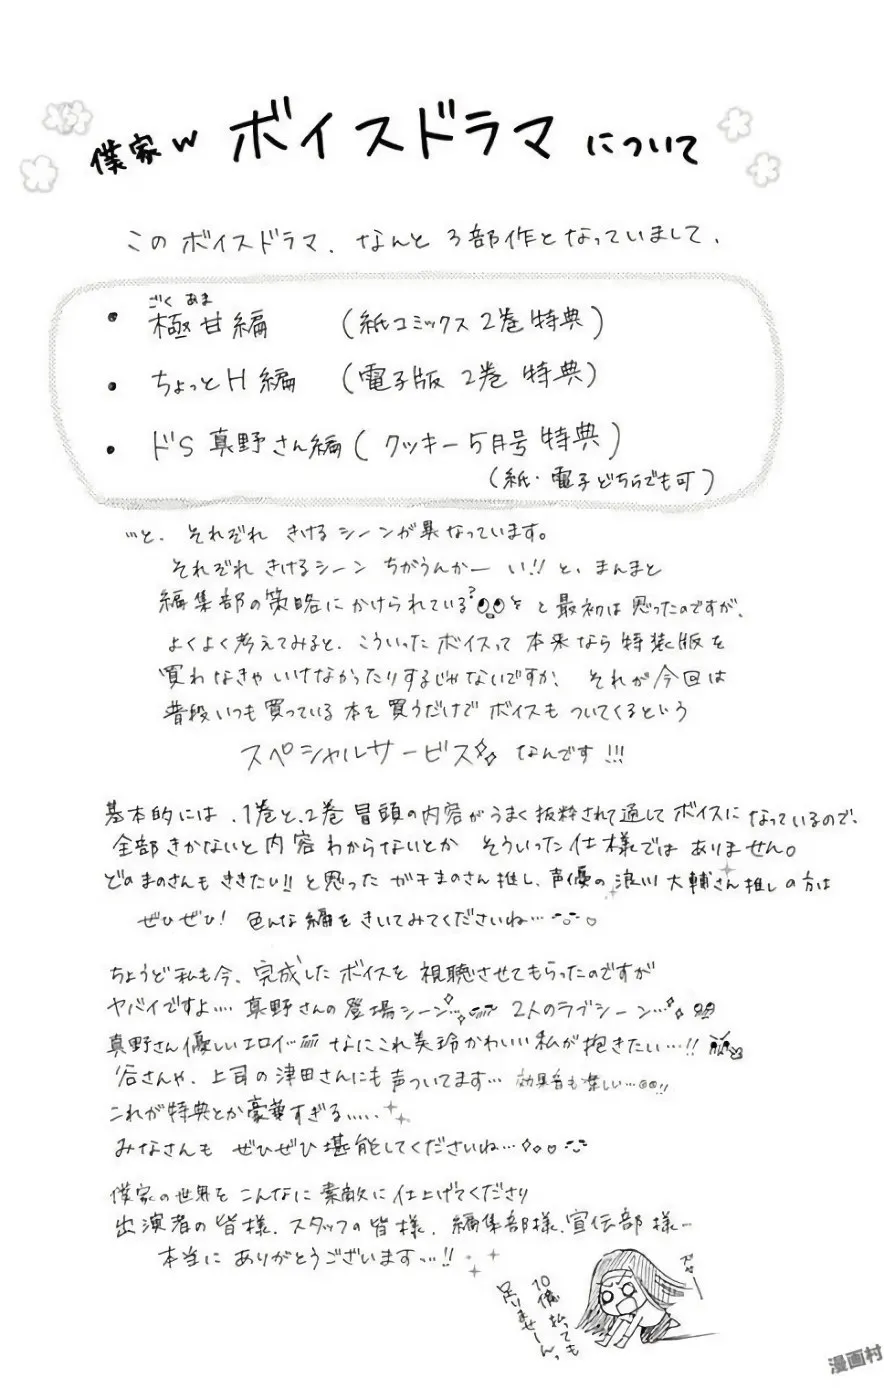 僕家w ボイスドラマ について
このボイスドラマ、なんと3部作となっていまして、
ごく あま
・極甘編 (紙コミックス2巻特典)
・ちょっとH編 (電子版 2巻 特典)
・ドS 真野さん編 (クッキー5月号特典)
(紙・電子どちらでも可)
…と、それぞれ きけるシーンが異なっています。
それぞれ きけるシーン ちがうんかーい!! と、まんまと
編集部の策略にかけられている? と最初は思ったのですが、
よくよく考えてみると、こういったボイスって本来なら特装版を
買わなきゃいけなかったりするじゃないですか、それが今回は
普段いつも買っている本を買うだけでボイスもついてくるという
スペシャルサービス なんです!!!
基本的には、1巻と、2巻 冒頭の内容がうまく抜粋されて通してボイスになっているので、
全部きかないと内容わからないとか そういった仕様ではありません。
どのまのさんもききたい!! と思った ガチまのさん推し、声優の浪川大輔さん推しの方は
ぜひぜひ! 色んな編をきいてみてくださいね…
ちょうど私も今、完成したボイスを 視聴させてもらったのですが
ヤバイですよ…. 真野さんの登場シーン… 2人のラブシーン…
真野さん優しいエロイ… なにこれ美玲かわいい私が抱きたい…!!
谷さんや、上司の津田さんにも声ついてます… 効果音も楽しい…!!
これが特典とか豪華すぎる.....
みなさんも ぜひぜひ堪能してくださいね…
僕家の世界を こんなに素敵に仕上げてくださり
出演者の皆様、スタッフの皆様、編集部様、宣伝部様ー
本当に ありがとうございます…!!
10億払っても
足りませーん、
漫画村